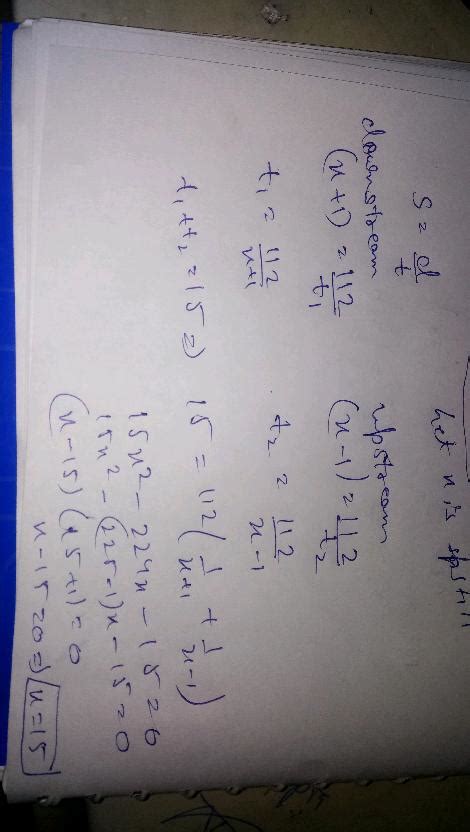 Let x is
S = d/t
downstream
(x+1) = 112/t₁
upstream
(x-1) = 112/t₂
t₁ = 112/x+1
t₂ = 112/x-1
t₁+t₂ = 15 ⇒ 15 = 112(1/x+1 + 1/x-1)
15x² - 224x - 15 = 0
15x² - (225-1)x - 15 = 0
(x-15)(15+1) = 0
x-15=0 ⇒ x=15